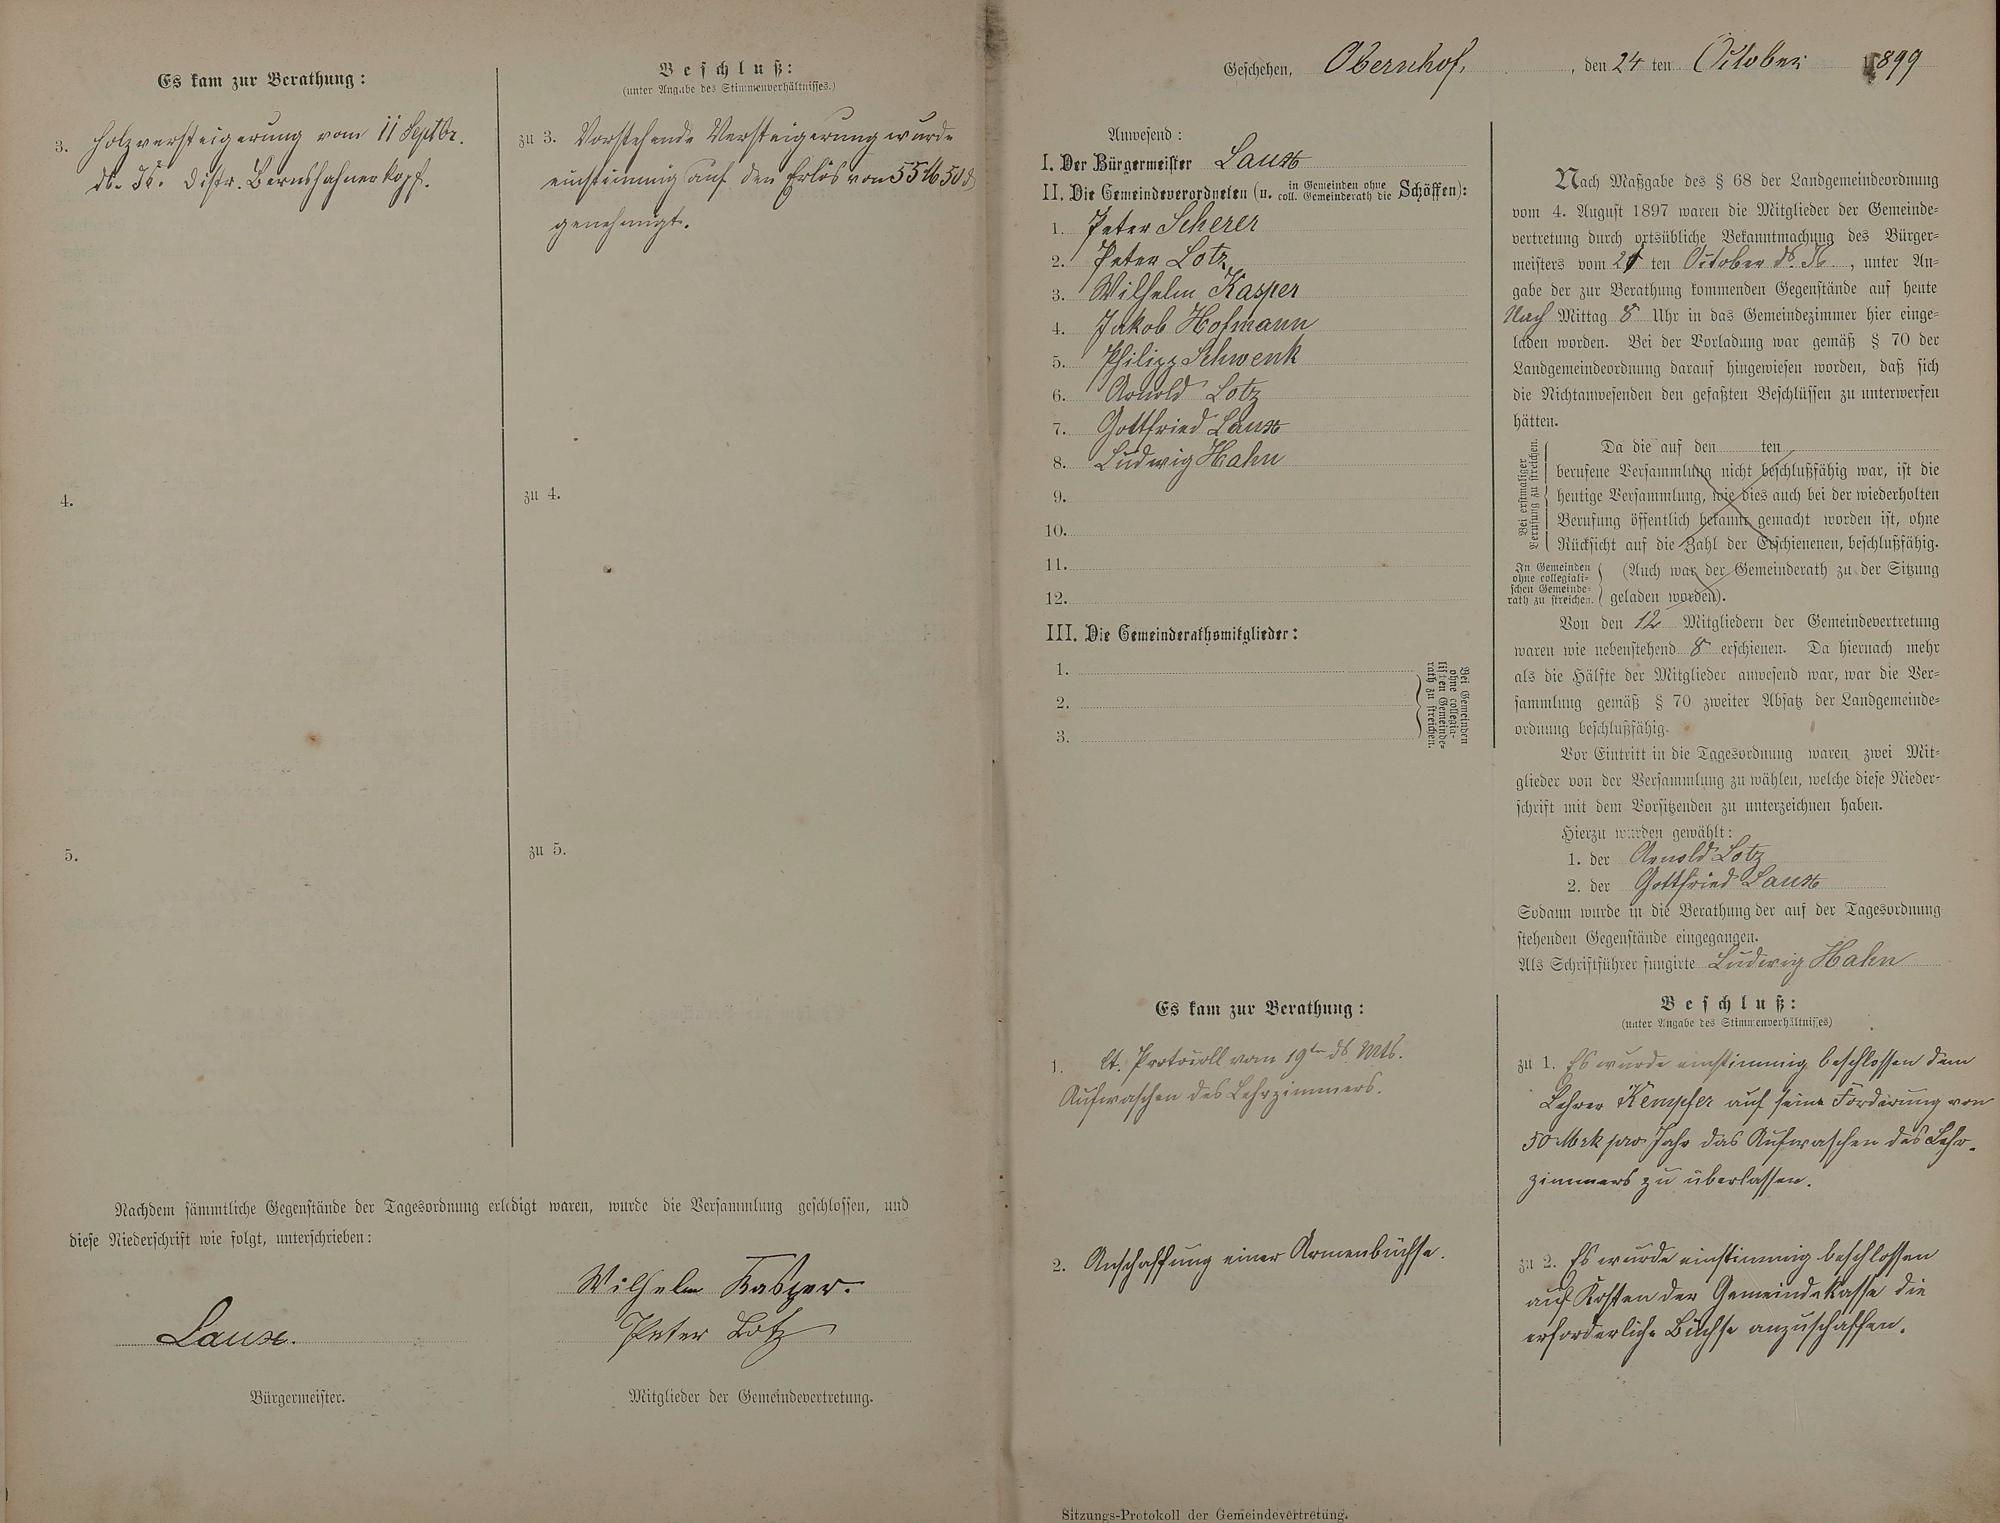 Es kam zur Berathung:
3. Holzversteigerung vom 11 Septbr.
ds. Js. Distr. Bernshahnerkopf.
4.
5.
Beschluß:
(unter Angabe des Stimmenverhältnisses.)
zu 3. Vorstehende Versteigerung wurde
einstimmig auf den Erlös von 55 M 50 d
genehmigt.
zu 4.
zu 5.
Nachdem sämmtliche Gegenstände der Tagesordnung erledigt waren, wurde die Versammlung geschlossen, und
diese Niederschrift wie folgt, unterschrieben:
Wilhelm Kasper.
Laux.
Peter Lotz
Bürgermeister.
Mitglieder der Gemeindevertretung.
Geschehen, Obernhof, , den 24 ten October 1899
Anwesend:
I. Der Bürgermeister Laux
II. Die Gemeindeverordneten (u. in Gemeinden ohne coll. Gemeinderath die Schöffen):
1. Peter Scherer
2. Peter Lotz
3. Wilhelm Kasper
4. Jakob Hofmann
5. Philipp Schwenk
6. Arnold Lotz
7. Gottfried Laux
8. Ludwig Hahn
9.
10.
11.
12.
III. Die Gemeinderathsmitglieder:
1.
2.
3.
Bei Gemeinden
ohne collegia-
lischen Gemeinde-
rath zu streichen.
Nach Maßgabe des § 68 der Landgemeindeordnung
vom 4. August 1897 waren die Mitglieder der Gemeinde-
vertretung durch ortsübliche Bekanntmachung des Bürger-
meisters vom 21 ten October ds. Js. , unter An-
gabe der zur Berathung kommenden Gegenstände auf heute
Nach Mittag 8 Uhr in das Gemeindezimmer hier einge-
laden worden. Bei der Vorladung war gemäß § 70 der
Landgemeindeordnung darauf hingewiesen worden, daß sich
die Nichtanwesenden den gefaßten Beschlüssen zu unterwerfen
hätten.
Bei erstmaliger
Berufung zu streichen.
Da die auf den ten
berufene Versammlung nicht beschlußfähig war, ist die
heutige Versammlung, wie dies auch bei der wiederholten
Berufung öffentlich bekannt gemacht worden ist, ohne
Rücksicht auf die Zahl der Erschienenen, beschlußfähig.
In Gemeinden
ohne collegiali-
schen Gemeinde-
rath zu streichen.
(Auch war der Gemeinderath zu der Sitzung
geladen worden).
Von den 12 Mitgliedern der Gemeindevertretung
waren wie nebenstehend 8 erschienen. Da hiernach mehr
als die Hälfte der Mitglieder anwesend war, war die Ver-
sammlung gemäß § 70 zweiter Absatz der Landgemeinde-
ordnung beschlußfähig.
Vor Eintritt in die Tagesordnung waren zwei Mit-
glieder von der Versammlung zu wählen, welche diese Nieder-
schrift mit dem Vorsitzenden zu unterzeichnen haben.
Hierzu wurden gewählt:
1. der Arnold Lotz
2. der Gottfried Laux
Sodann wurde in die Berathung der auf der Tagesordnung
stehenden Gegenstände eingegangen.
Als Schriftführer fungirte Ludwig Hahn
Es kam zur Berathung:
1. lt. Protocoll vom 19ten ds. Mts.
Aufwaschen des Lehrzimmers.
2. Anschaffung einer Armenbüchse.
Beschluß:
(unter Angabe des Stimmenverhältnisses)
zu 1. Es wurde einstimmig beschlossen dem
Lehrer Kempfer auf seine Forderung von
50 Mrk pro Jahr das Aufwaschen des Lehr-
zimmers zu überlassen.
zu 2. Es wurde einstimmig beschlossen
auf Kosten der Gemeindekasse die
erforderliche Büchse anzuschaffen.
Sitzungs-Protokoll der Gemeindevertretung.